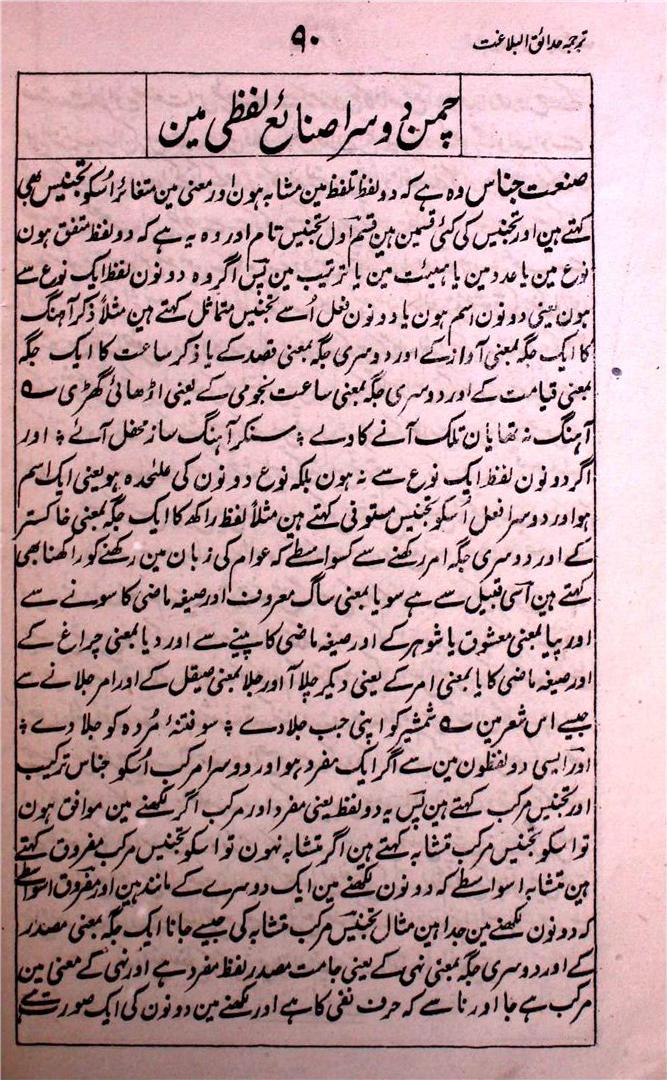 ترجمہ حدائق البلاغت
۹۰
چمن دوسرا صنایع لفظی مین
صنعت جناس وہ ہے کہ دو لفظ تلفظ مین مشابہ ہون اور معنی مین متغائر اُسکو تجنیس بھی
کہتے ہین اور تجنیس کی کئی قسمین ہین قسم اول تجنیس تام اور وہ یہ ہے کہ دو لفظ متفق ہون
نوع مین یا عدد مین یا ہیئت مین یا ترتیب مین پس اگر وہ دونون لفظ ایک نوع سے
ہون یعنی دونون اسم ہون یا دونون فعل اُسے تجنیس متماثل کہتے ہین مثلاً ذکر آہنگ
کا ایک جگہ بمعنی آواز کے اور دوسری جگہ بمعنی قصد کے یا ذکر ساعت کا ایک جگہ
بمعنی قیامت کے اور دوسری جگہ بمعنی ساعت نجومی کے یعنی اڑھائی گھڑی ؎
آہنگ نہ تھا یان تلک آنے کا ولے ٭ سنکر آہنگ ساز محفل آئے ٭ اور
اگر دونون لفظ ایک نوع سے نہ ہون بلکہ نوع دونون کی علیحدہ ہو یعنی ایک اسم
ہو اور دوسرا فعل اُسکو تجنیس مستوفی کہتے ہین مثلاً لفظ راکھ کا ایک جگہ بمعنی خاکستر
کے اور دوسری جگہ امر رکھنے سے کسواسطے کہ عوام کی زبان مین رکھنے کو راکھنا بھی
کہتے ہین اسی قبیل سے ہے سویا بمعنی ساگ معروف اور صیغہ ماضی کا سونے سے
اور پیا بمعنی معشوق یا شوہر کے اور صیغہ ماضی کا پینے سے اور دیا بمعنی چراغ کے
اور صیغہ ماضی کا یا بمعنی امر کے یعنی دیکر چلا آ اور جلا بمعنی صیقل کے اور امر جلانے سے
جیسے اس شعر مین ؎ شمشیر کو اپنی جب جلا دے ٭ سو فتنۂ مُردہ کو جلا دے ٭
اور ایسی دو لفظون مین سے اگر ایک مفرد ہو اور دوسرا مرکب اُسکو جناس ترکیب
اور تجنیس مرکب کہتے ہین پس یہ دو لفظ یعنی مفرد اور مرکب اگر لکھنے مین موافق ہون
تو اسکو تجنیس مرکب متشابہ کہتے ہین اگر متشابہ نہون تو اسکو تجنیس مرکب مفروق کہتے
ہین متشابہ اسواسطے کہ دونون لکھنے مین ایک دوسرے کے مانند ہین اور مفروق اسواسطے
کہ دونون لکھنے مین جدا ہین مثال تجنیس مرکب متشابہ کی جیسے جانا ایک جگہ بمعنی مصدر
کے اور دوسری جگہ بمعنی نہی کے یعنی جا مت مصدر لفظ مفرد ہے اور نہی کے معنی مین
مرکب ہے جا اور نا سے کہ حرف نفی کا ہے اور لکھنے مین دونون کی ایک صورت ہے